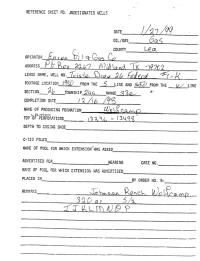 REFERENCE SHEET FOR UNDESIGNATED WELLS
DATE 1/27/99
OIL/GAS Gas
COUNTY Lea
OPERATOR Enron Oil & Gas Co
ADDRESS P.O. Box 2267 Midland TX 79702
LEASE NAME, WELL NO. Triste Draw 26 Federal #1-K
FOOTAGE LOCATION 1980 FROM THE S LINE AND 1650 FROM THE W LINE
SECTION 26 TOWNSHIP 24S RANGE 33E
COMPLETION DATE 12/16/98
NAME OF PRODUCING FORMATION Wolfcamp
TOP OF PERFORATIONS 13396 - 13498
DEPTH TO CASING SHOE
C-123 FILED
NAME OF POOL FOR WHICH EXTENSION WAS ASKED
ADVERTISED FOR HEARING CASE NO.
NAME OF POOL FOR WHICH EXTENSION WAS ADVERTISED
PLACED IN BY ORDER NO. R-
REMARKS Johnson Ranch Wolfcamp
320 ac S/2
I J K L M N O P